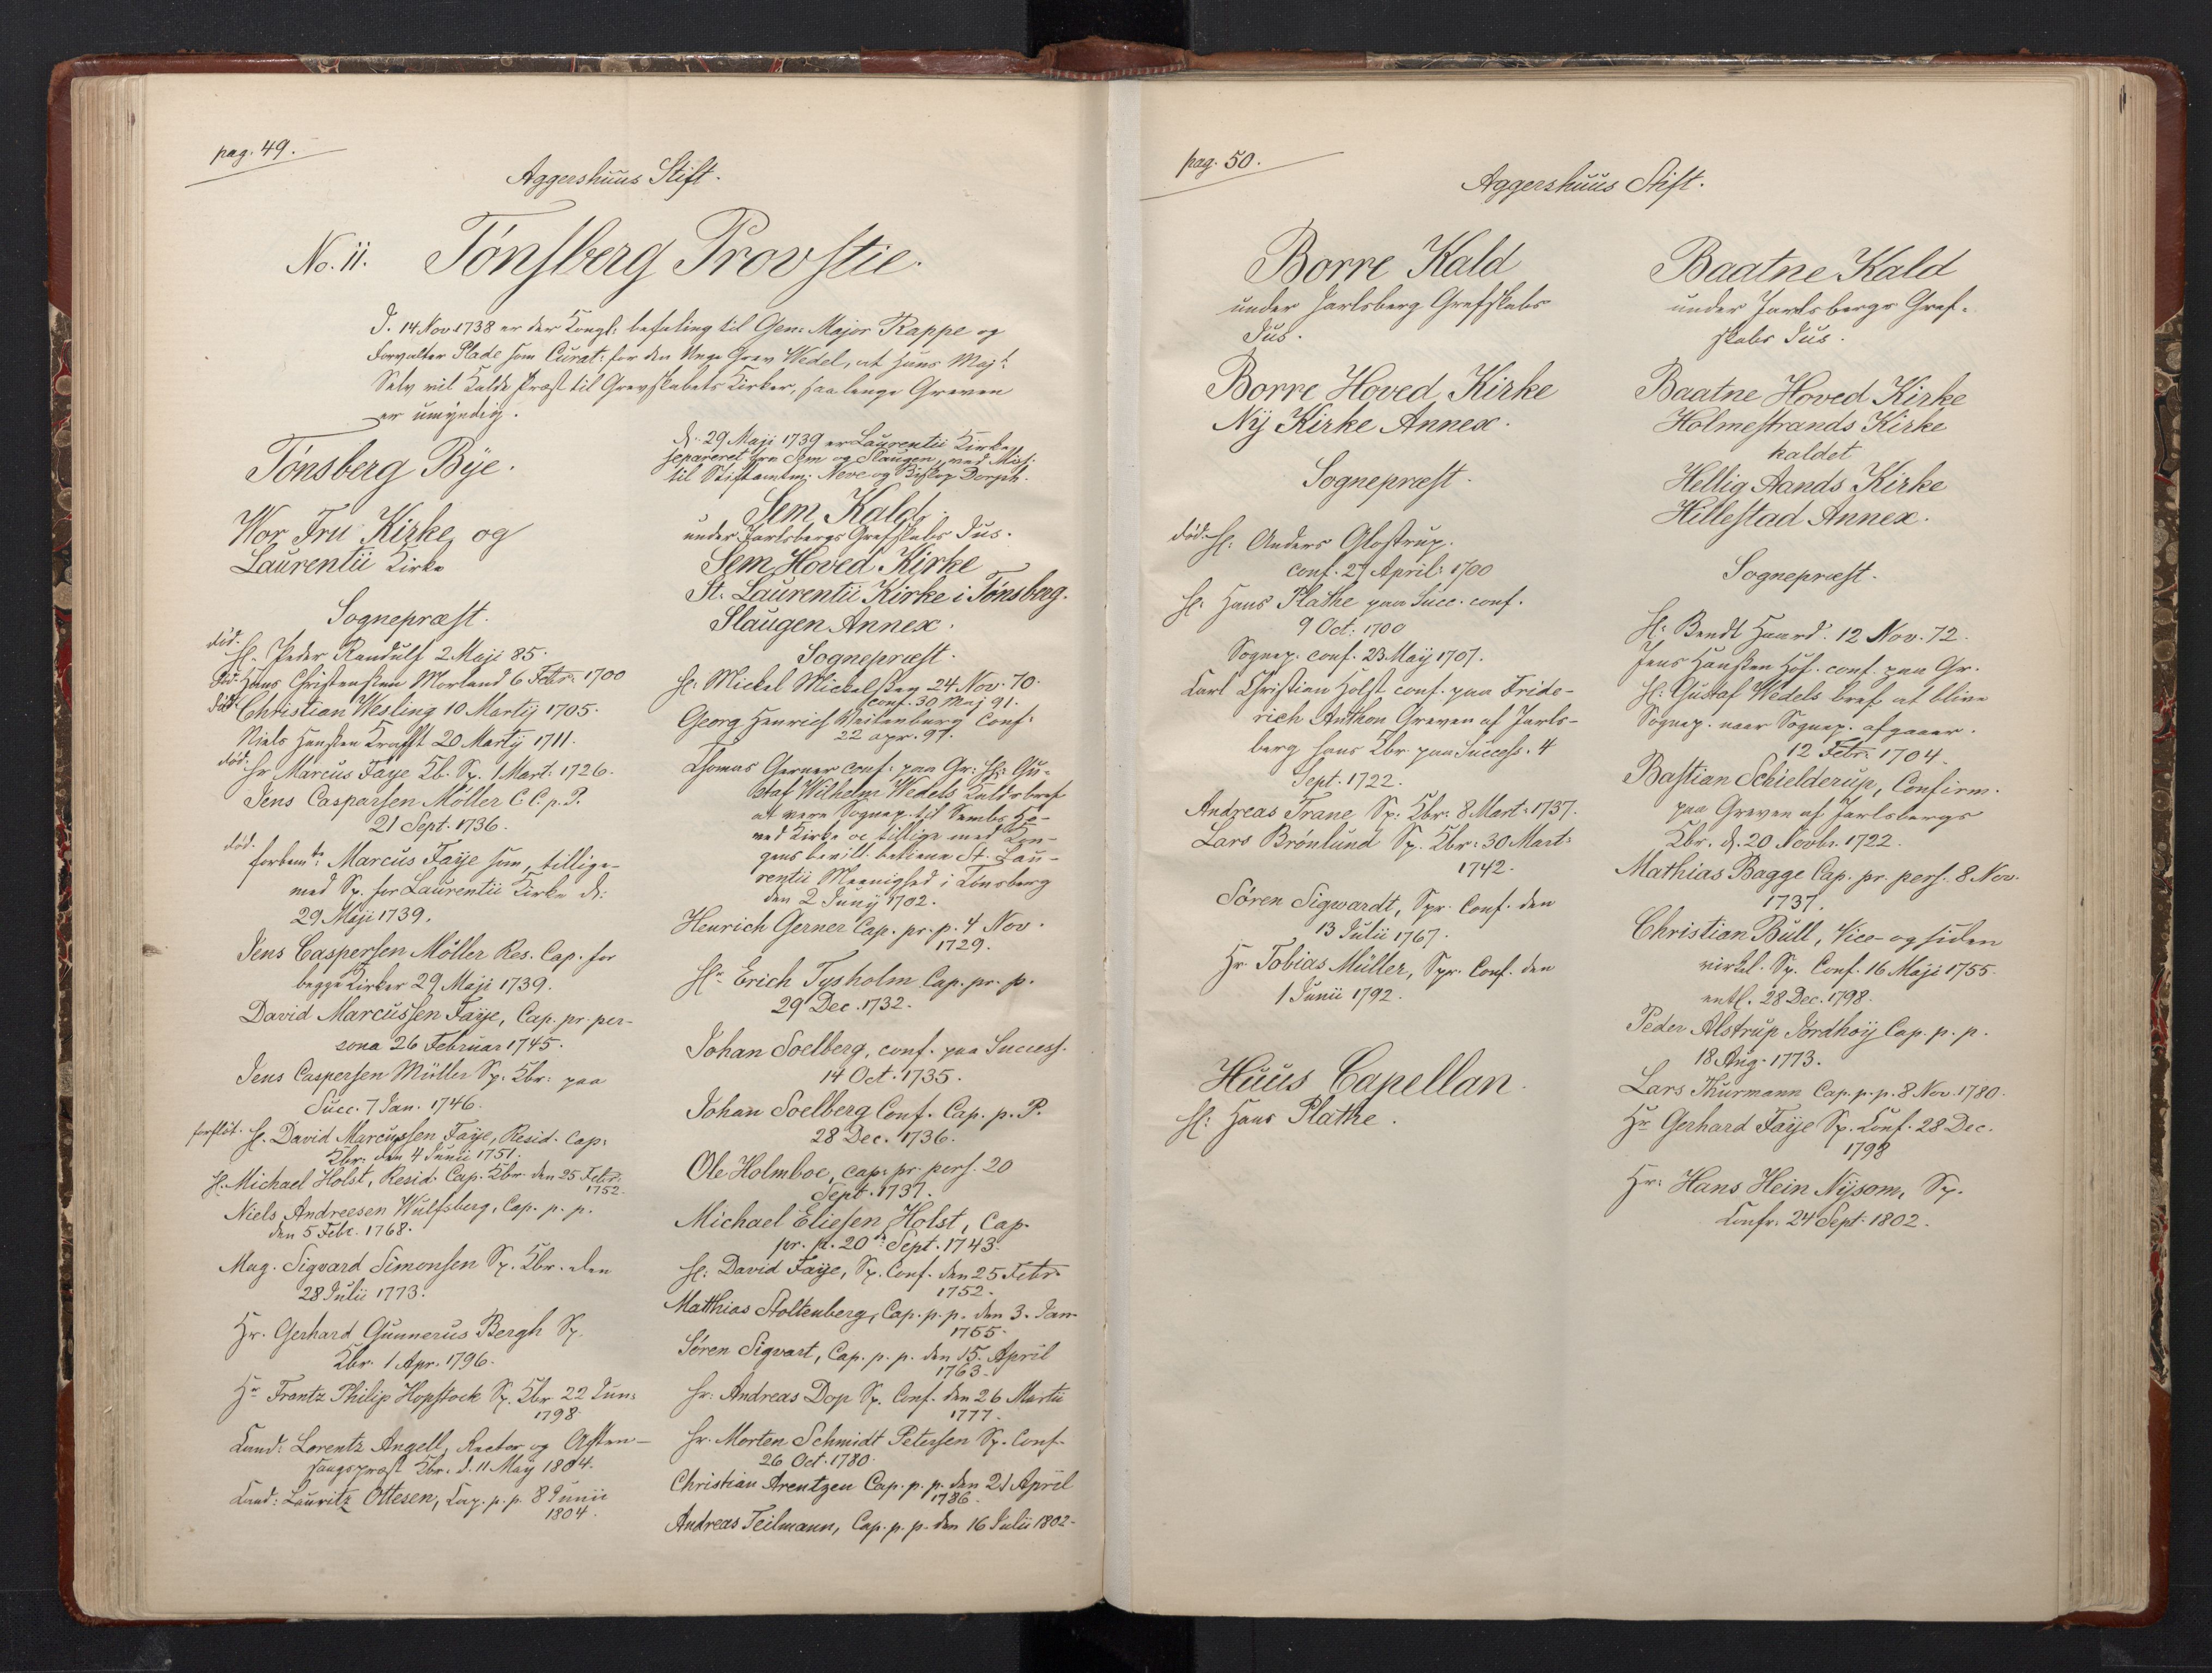 pag. 49.
Aggershuus Stift.
No. 11. Tønsberg Provstie.
D. 14 Nov 1738 er der Kongl: befaling til Gen: Major Rappe og
Forvalter Plade som Curat: for den Unge Grev Wedel, at Hans Maj.t
Selv vil kalde Præst til Grevskabets Kirker, saalenge Greven
er umyndig.
Tønsberg Bÿe.
Wor Fru Kirke og
Laurentii Kirke
Sognepræst.
død. H. Peder Randulf 2 Maji 85.
død. Hans Christensen Morland 6 Febr: 1700
død. Christian Wesling 10 Martij 1705.
Niels Hansen Krafft 20 Martij 1711.
død. Hr Marcus Faÿe Kb. Sp. 1 Mart: 1726.
Jens Caspersen Møller C C. p. P.
21 Sept. 1736.
død. forbem.te Marcus Faÿe som tillige-
med Sp. for Laurentii Kirke d:
29 Maji 1739.
Jens Caspersen Møller Res. Cap. for
begge Kirker 29 Maji 1739.
David Marcussen Faÿe, Cap. pr. per-
sona 26 Februar 1745.
Jens Caspersen Müller Sp. Kbr: paa
Succ. 7 Jan. 1746.
forflÿt. H. David Marcussen Faÿe, Resid. Cap:
Kbr: den 4 Junii 1751.
H. Michael Holst, Resid. Cap. Kbr. den 25 Febr:
1752.
Niels Andreesen Wulfsberg, Cap. p. p.
den 5 Febr. 1768.
Mag. Sigvard Simonsen Sp. Kbr. den
28 Julii 1773.
Hr. Gerhard Gunnerus Bergh Sp.
Kbr. 1 Apr. 1796.
Hr Frantz Philip Hopstock Sp. Kbr 22 Jun:
1798.
Cand: Lorentz Angell, Rector og Aften-
sangspræst Kbr. d. 11 Maÿ 1804.
Cand: Lauritz Ottesen, Cap. p. p. 8 Junii
1804.
d. 29 Maji 1739 er Laurentii Kirke
separeret fra Sem og Slaugen, ved Miss:
til Stiftamtm: Neve og Biskop Dorph.
Sem Kald.
under Jarlsbergs Grefskabs Jus.
Sem Hoved Kirke
St. Laurentii Kirke i Tønsberg.
Slaugen Annex.
Sognepræst.
H: Mickel Mickelsen 24 Nov. 70.
conf. 30 Maj 91.
Georg Henrich Weitenburg Conf.
22 apr. 97.
Thomas Gerner conf: paa Gr: H: Gu-
staf Wilhelm Wedels Kaldsbref
at være Sognep. til Sembs Ho-
ved Kirke oc tillige med Kon-
gens bevill. betiene St. Lau-
rentii Meenighed i Tønsberg
den 2 Junij 1702.
Henrich Gerner Cap. pr. p. 4 Nov.
1729.
Hr Erich Tÿsholm Cap. pr. p.
29 Dec. 1732.
Johan Soelberg, conf. paa Success.
14 Oct. 1735.
Johan Soelberg Conf. Cap. p. P.
28 Dec. 1736.
Ole Holmboe, cap: pr. pers. 20
Sept. 1737.
Michael Eliesen Holst, Cap.
pr. p. 20de Sept. 1743.
H: David Faÿe, Sp. Conf. den 25 Febr.
1752.
Matthias Stoltenberg, Cap. p. p. den 3. Jan.
1755.
Søren Sigvart, Cap. p. p. den 15. April
1763.
Hr: Andreas Dop Sp. Conf. den 26 Martii
1777.
Hr. Morten Schmidt Petersen Sp. Conf.
26 Oct. 1780.
Christian Arentzen Cap. p. p. den 21 April
1786.
Andreas Teilmann, Cap. p. p. den 16 Julii 1802.
pag. 50.
Aggershuus Stift.
Borre Kald
under Jarlsberg Grefskabs
Jus.
Borre Hoved Kirke
Nÿ Kirke Annex.
Sognepræst.
død. H: Anders Glostrup.
conf. 27 April: 1700
H: Hans Plathe paa Succ. conf.
9 Oct: 1700
Sognep. conf. 23 Maÿ 1701.
Carl Christian Holst conf. paa Fride-
rich Anthon Greven af Jarls-
berg hans Kbr. paa Success. 4
Sept. 1722.
Andreas Trane Sp: Kbr: 8 Mart: 1737.
Lars Brønlund Sp. Kbr: 30 Mart:
1742.
Søren Sigwardt, Spr. Conf. den
13 Julii 1767.
Hr Tobias Müller, Spr. Conf. den
1 Junii 1792.
Huus Capellan.
H: Hans Plathe.
Baatne Kald
under Jarlsbergs Gref-
skabs Jus.
Baatne Hoved Kirke
Holmestrands Kirke
kaldet
Hellig Aands Kirke
Hillestad Annex.
Sognepræst.
H: Bendt Haard. 12 Nov. 72.
Jens Hansen Hof. conf. paa Gr.
H: Gustaf Wedels bref at blive
Sognep. naar Sognep. afgaaer.
12 Febr. 1704.
Bastian Schielderup, Confirm.
paa Greven af Jarlsbergs
Kbr. d. 20 Novbr. 1722.
Mathias Bagge Cap. pr. pers. 8 Nov.
1737.
Christian Bull, Vice- og siden
virkel. Sp. Conf. 16 Maji 1755.
entl. 28 Dec. 1798.
Peder Alstrup Jordhøÿ Cap. p. p.
18 Aug. 1773.
Lars Thurmann Cap. p. p. 8 Nov. 1780.
Hr Gerhard Faÿe Sp. Conf. 28 Dec.
1798
Hr: Hans Hein Nÿsom, Sp.
Confr. 24 Sept: 1802.